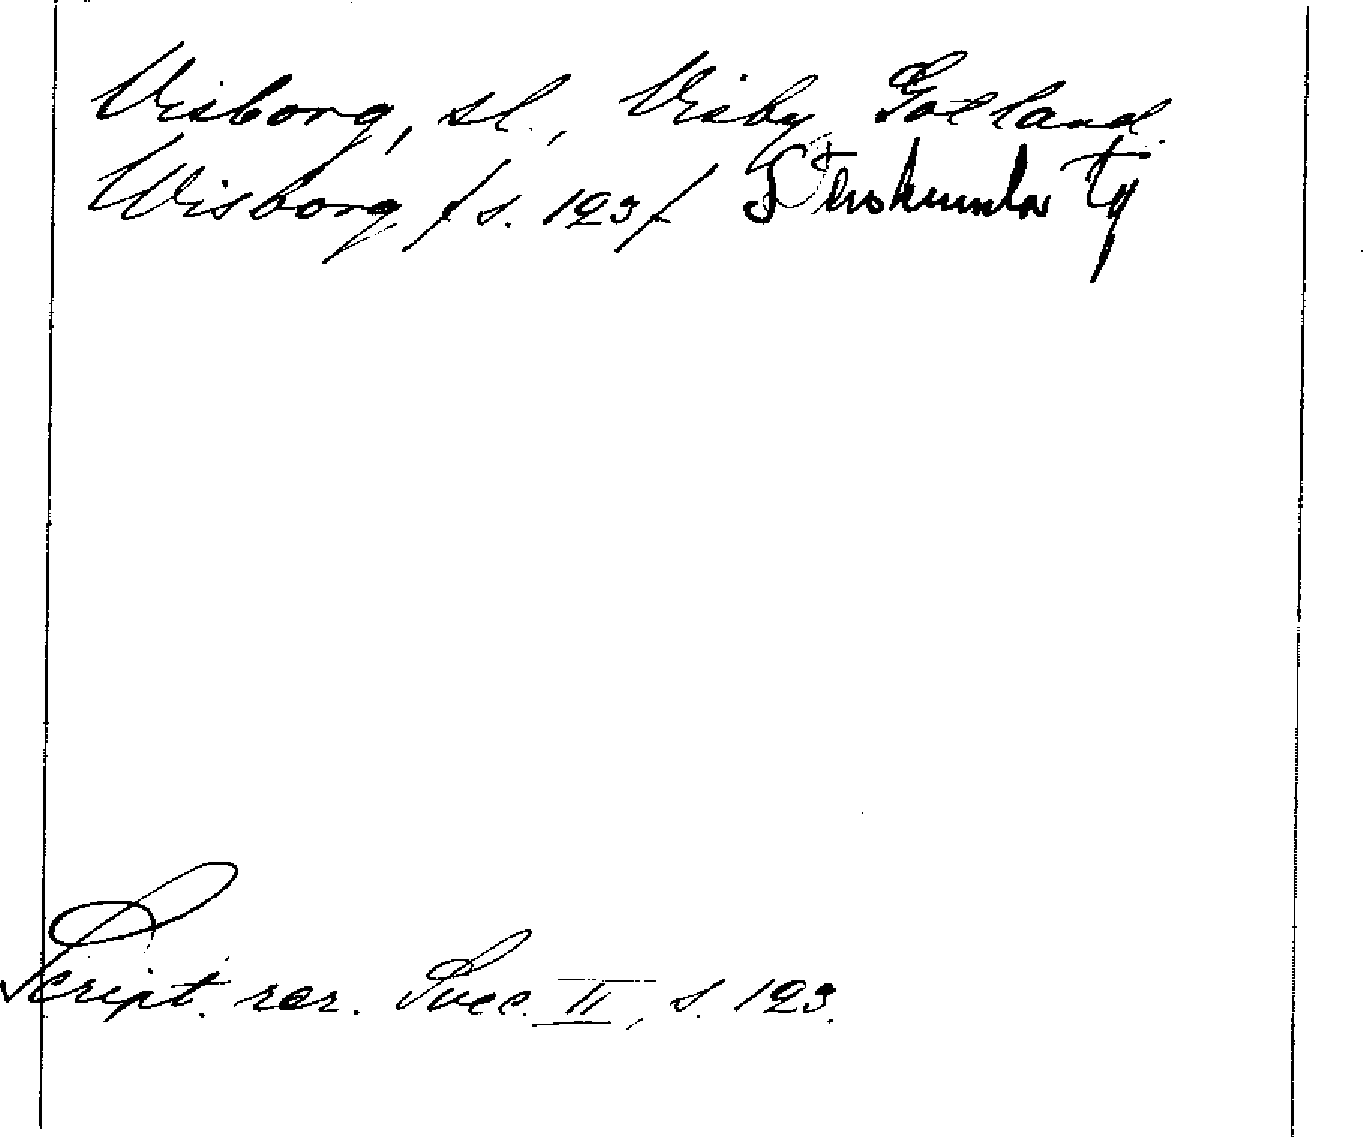 Visborg, sl., Visby Gotland
Wisborg /s. 123/ Stenkumla tg
Script. rer. Svec. II, s. 123.